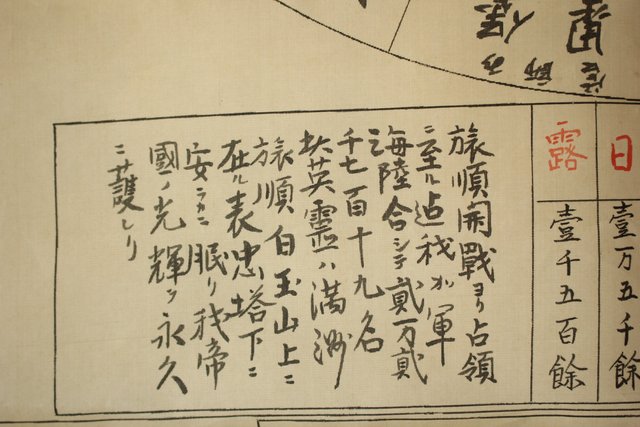 日
壹万五千餘
露
壹千五百餘
旅順開戰ヨリ占領
ニ至ル迠我ガ軍
海陸合シテ貳万貳
千七百十九名
英靈ハ満洲
旅順白玉山上ニ
在ル表忠塔下ニ
安ラカニ眠リ我帝
國ノ光輝ヲ永久
ニ護レリ